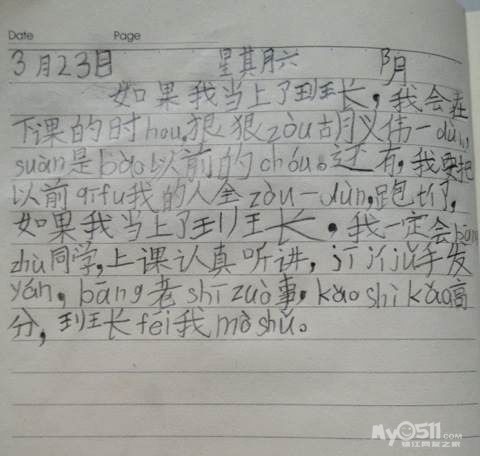 Date Page
3月23日 星其月六 阴
如果我当上了班长，我会在
下课的时hou,狠狠zòu胡义伟一dùn,
suàn是bào以前的chóu。还有，我要把
以前qīfu我的人全zòu一dùn,跑圿了,
如果我当上了班长，我一定会bāng
zhù同学，上课认真听讲，jī jí jǔ手发
yán，bāng老shī zuò事，kǎo shì kǎo高
分，班长fēi我mò shǔ。
My0511.COM
镇江网友之家